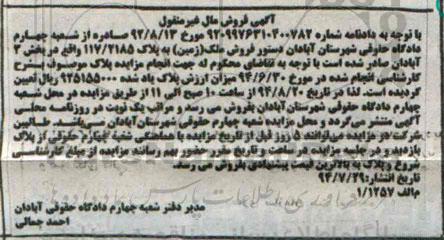 آگهی فروش مال غیرمنقول
با توجه به دادنامه شماره ۹۲۰۹۹۷۶۳۱۰۴۰۰۷۸۲ مورخ ۹۲/۸/۱۳ صادره از شعبه چهارم
دادگاه حقوقی شهرستان آبادان دستور فروش ملک(زمین) به پلاک ۱۱۷/۲۱۸۵ واقع در بخش ۳
آبادان صادر شده است با توجه به تقاضای محکوم له جهت انجام مزایده پلاک موصوف بشرح
کارشناسی انجام شده در مورخ ۹۴/۶/۳۰ میزان ارزش پلاک یاد شده ۹۲۵۱۵۵۰۰۰ ریال تعیین
گردیده است. لذا در تاریخ ۹۴/۸/۲۰ از ساعت ۱۰ صبح الی ۱۱ از طریق مزایده در محل شعبه
چهارم دادگاه حقوقی شهرستان آبادان بفروش می رسد و مراتب یک نوبت در روزنامه محلی
آگهی منتشر می گردد و محل مزایده شعبه چهارم حقوقی شهرستان آبادان میباشد. طالبین
شرکت در مزایده میتوانند ۵ روز قبل از تاریخ مزایده با هماهنگی شعبه چهارم حقوقی از پلاک
بازدید و در جلسه مزایده در ساعت و تاریخ مقرر حضور بهم رسانند مزایده از مبلغ کارشناسی
شروع و پلاک به بالاترین قیمت پیشنهادی بفروش می رسد.
تاریخ انتشار: ۹۴/۷/۲۹
م الف ۱/۱۲۵۷
مدیر دفتر شعبه چهارم دادگاه حقوقی آبادان
احمد جمالی